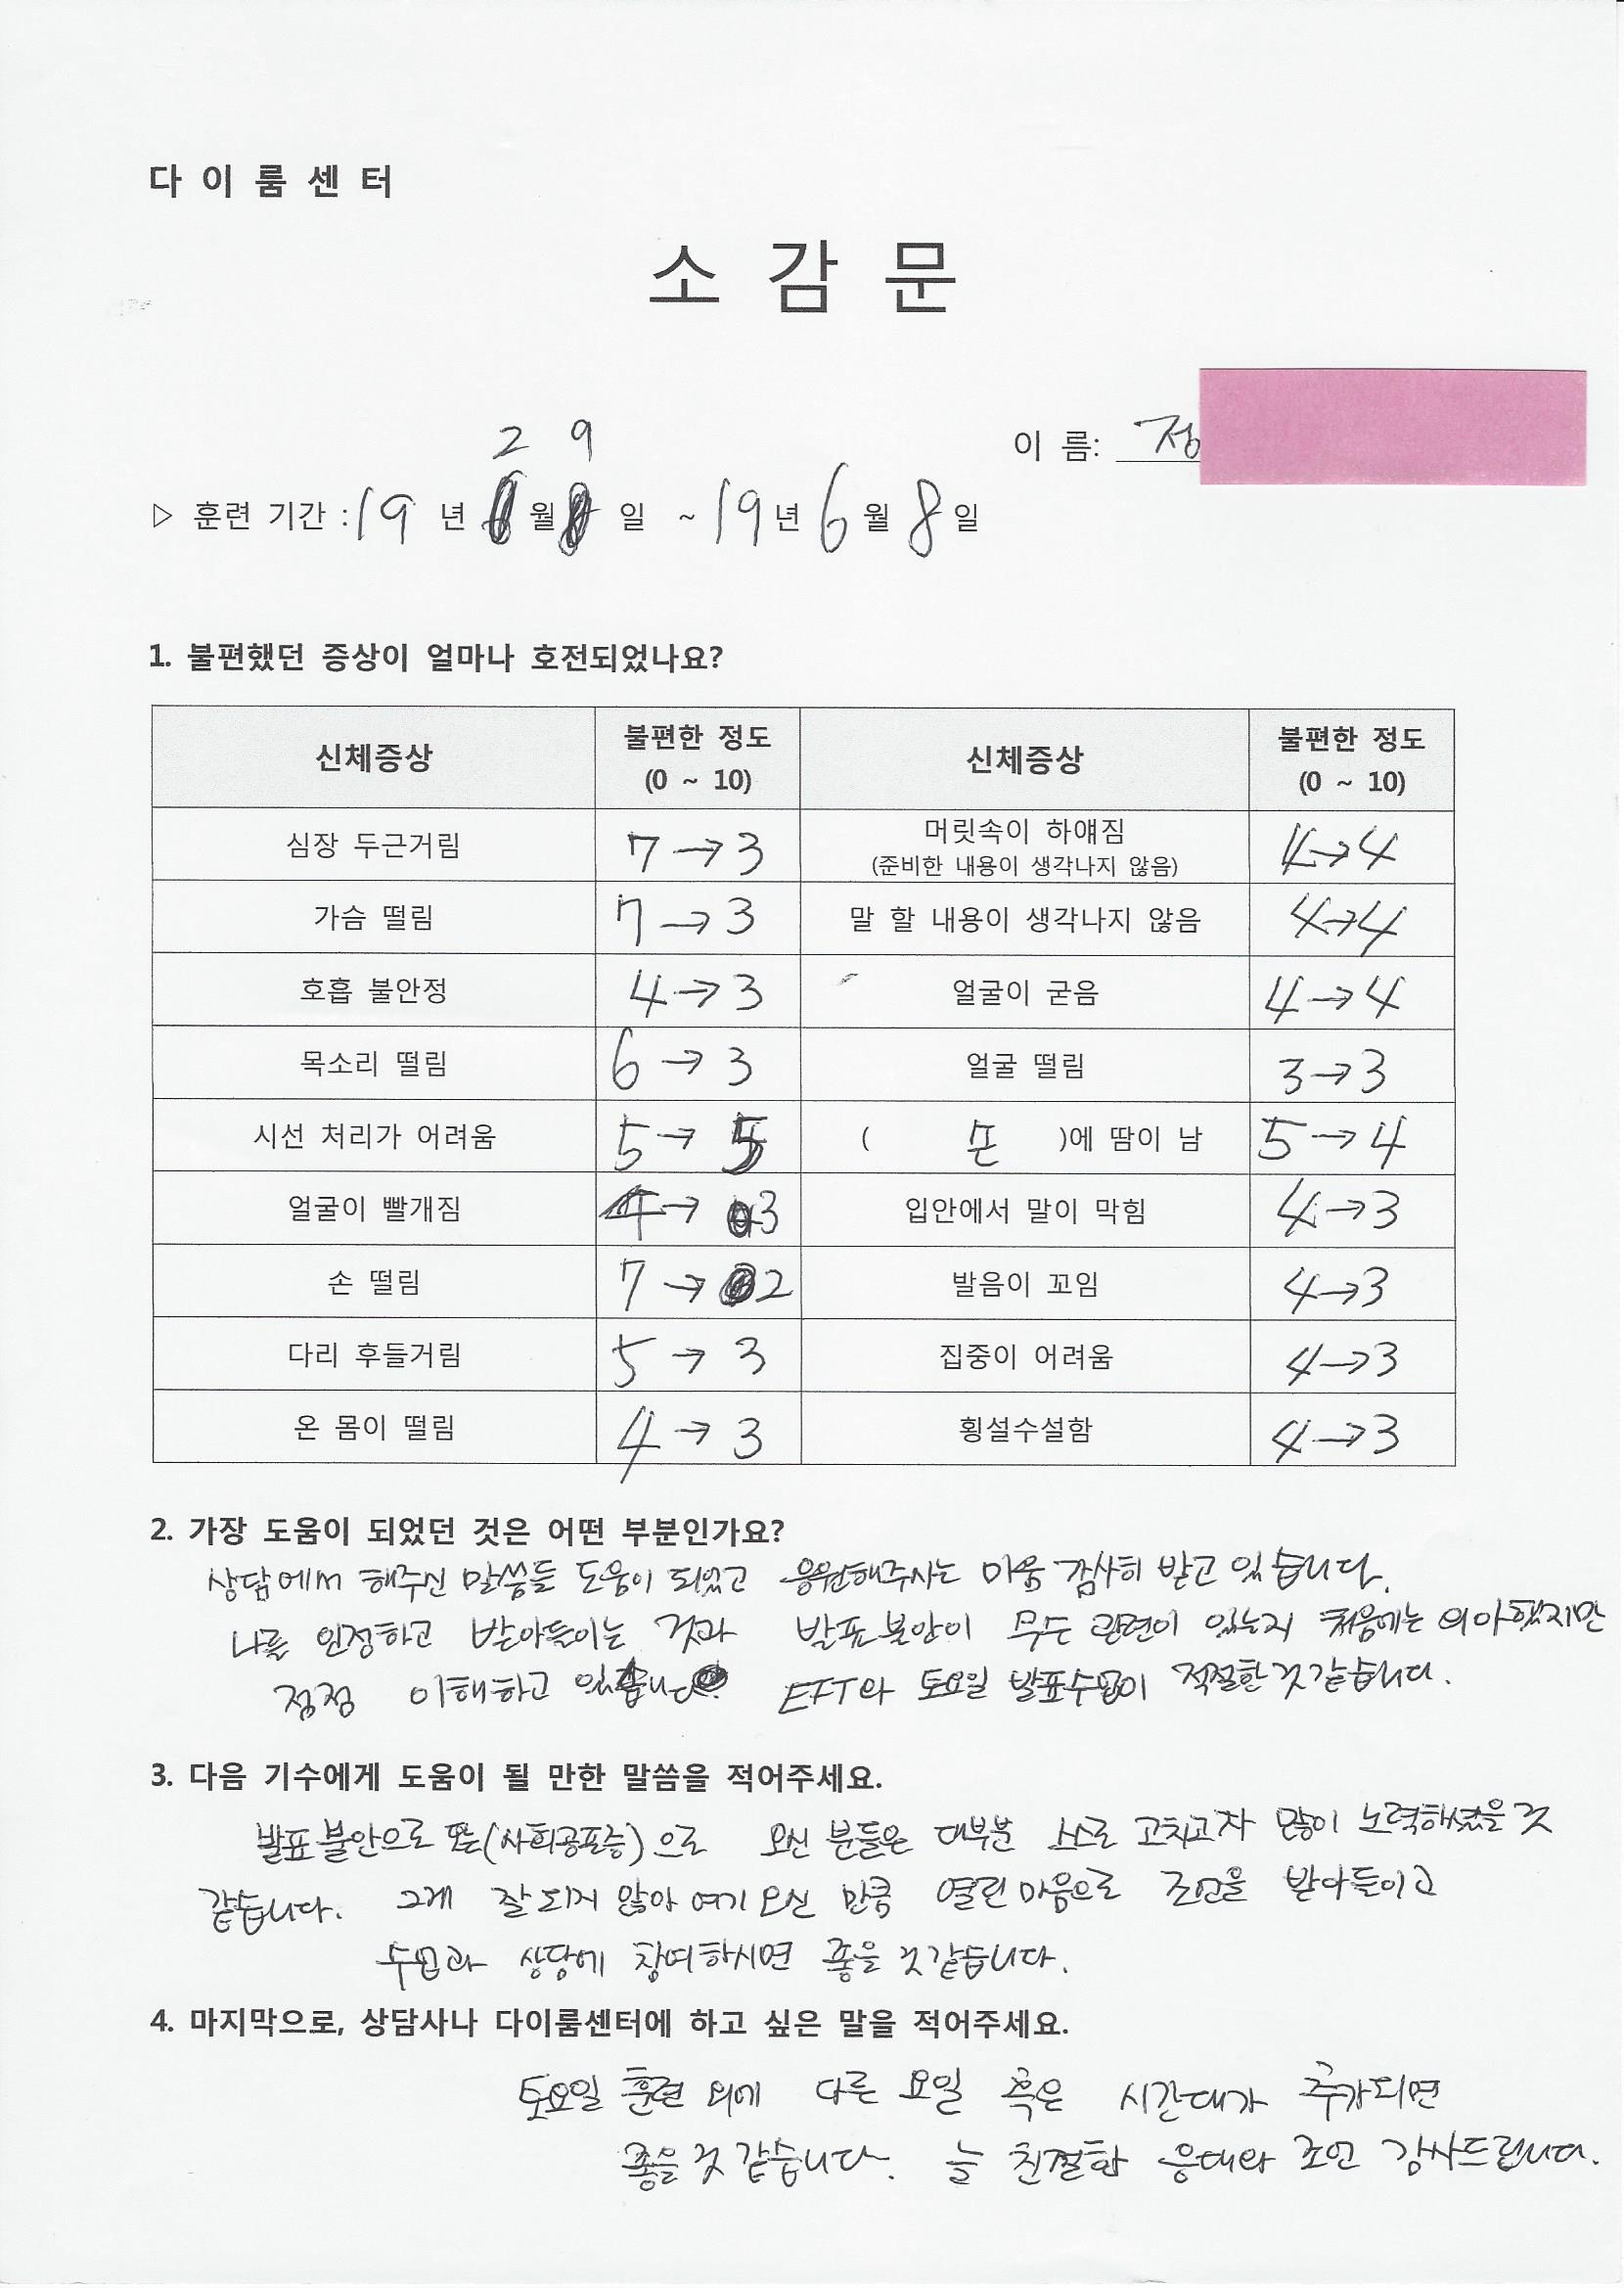 다 이 룸 센 터
소 감 문
이 름: 정
2 9
▷ 훈련 기간 : 19 년 월 일 ~ 19년 6월 8일
1. 불편했던 증상이 얼마나 호전되었나요?
신체증상 불편한 정도 (0 ~ 10) 신체증상 불편한 정도 (0 ~ 10)
심장 두근거림 7→3 머릿속이 하얘짐 (준비한 내용이 생각나지 않음) 4→4
가슴 떨림 7→3 말 할 내용이 생각나지 않음 4→4
호흡 불안정 4→3 얼굴이 굳음 4→4
목소리 떨림 6→3 얼굴 떨림 3→3
시선 처리가 어려움 5→5 ( 손 )에 땀이 남 5→4
얼굴이 빨개짐 4→3 입안에서 말이 막힘 4→3
손 떨림 7→2 발음이 꼬임 4→3
다리 후들거림 5→3 집중이 어려움 4→3
온 몸이 떨림 4→3 횡설수설함 4→3
2. 가장 도움이 되었던 것은 어떤 부분인가요?
상담에서 해주신 말씀들 도움이 되었고 응원해주시는 마음 감사히 받고 있습니다.
나를 인정하고 받아들이는 것과 발표불안이 무슨 관련이 있는지 처음에는 의아했지만
점점 이해하고 있습니다. EFT와 토요일 발표수업이 적절한 것 같습니다.
3. 다음 기수에게 도움이 될 만한 말씀을 적어주세요.
발표 불안으로 또는(사회공포증)으로 오신 분들은 대부분 스스로 고치고자 많이 노력하셨을 것
같습니다. 그게 잘 되지 않아 여기 오신 만큼 열린 마음으로 조언을 받아들이고
수업과 상담에 참여하시면 좋을 것 같습니다.
4. 마지막으로, 상담사나 다이룸센터에 하고 싶은 말을 적어주세요.
토요일 훈련 외에 다른 요일 혹은 시간대가 추가되면
좋을 것 같습니다. 늘 친절함 응대와 조언 감사드립니다.